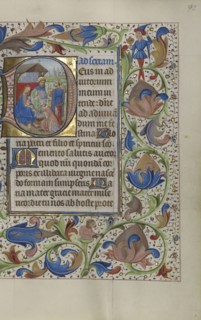 ad sextam.
Eus in ad
iutorium
meum in
tende. Dñe
ad adiuua
dum me fe
stina Glo
ria patri et filio et spiritui sco.
Memento salutis auctor
quod nri quondam cor
poris ex illibata uirgine nasce
do formam sumpseris. Ma
ria mater gracie mater mise
ricordie tu nos ab hoste prote